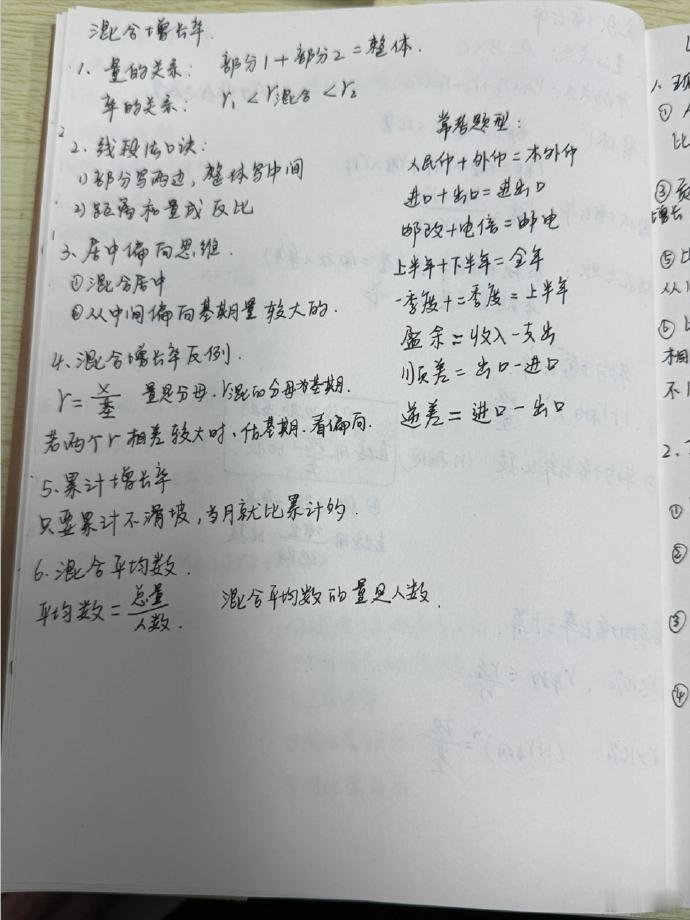 混合增长率.
1. 量的关系: 部分1+部分2=整体.
率的关系: r₁<r混合<r₂
2. 线段法口诀:
1)部分写两边, 整体写中间
2)距离和量成反比
3. 居中偏向思维.
①混合居中
②从中间偏向基期量较大的.
4. 混合增长率反例.
r=x/基 量是分母. r混的分母为基期.
若两个r相差较大时、估基期. 看偏向.
5. 累计增长率
只要累计不滑坡, 当月就比累计的.
6. 混合平均数.
平均数=总量/人数. 混合平均数的量是人数.
常考题型:
人民币+外币=本外币
进口+出口=进出口
邮政+电信=邮电
上半年+下半年=全年
一季度+二季度=上半年
盈余=收入-支出
顺差=出口-进口
逆差=进口-出口
1.
①
比
③
增长
⑤
从
⑥
相
不
2.
①
②
③
④